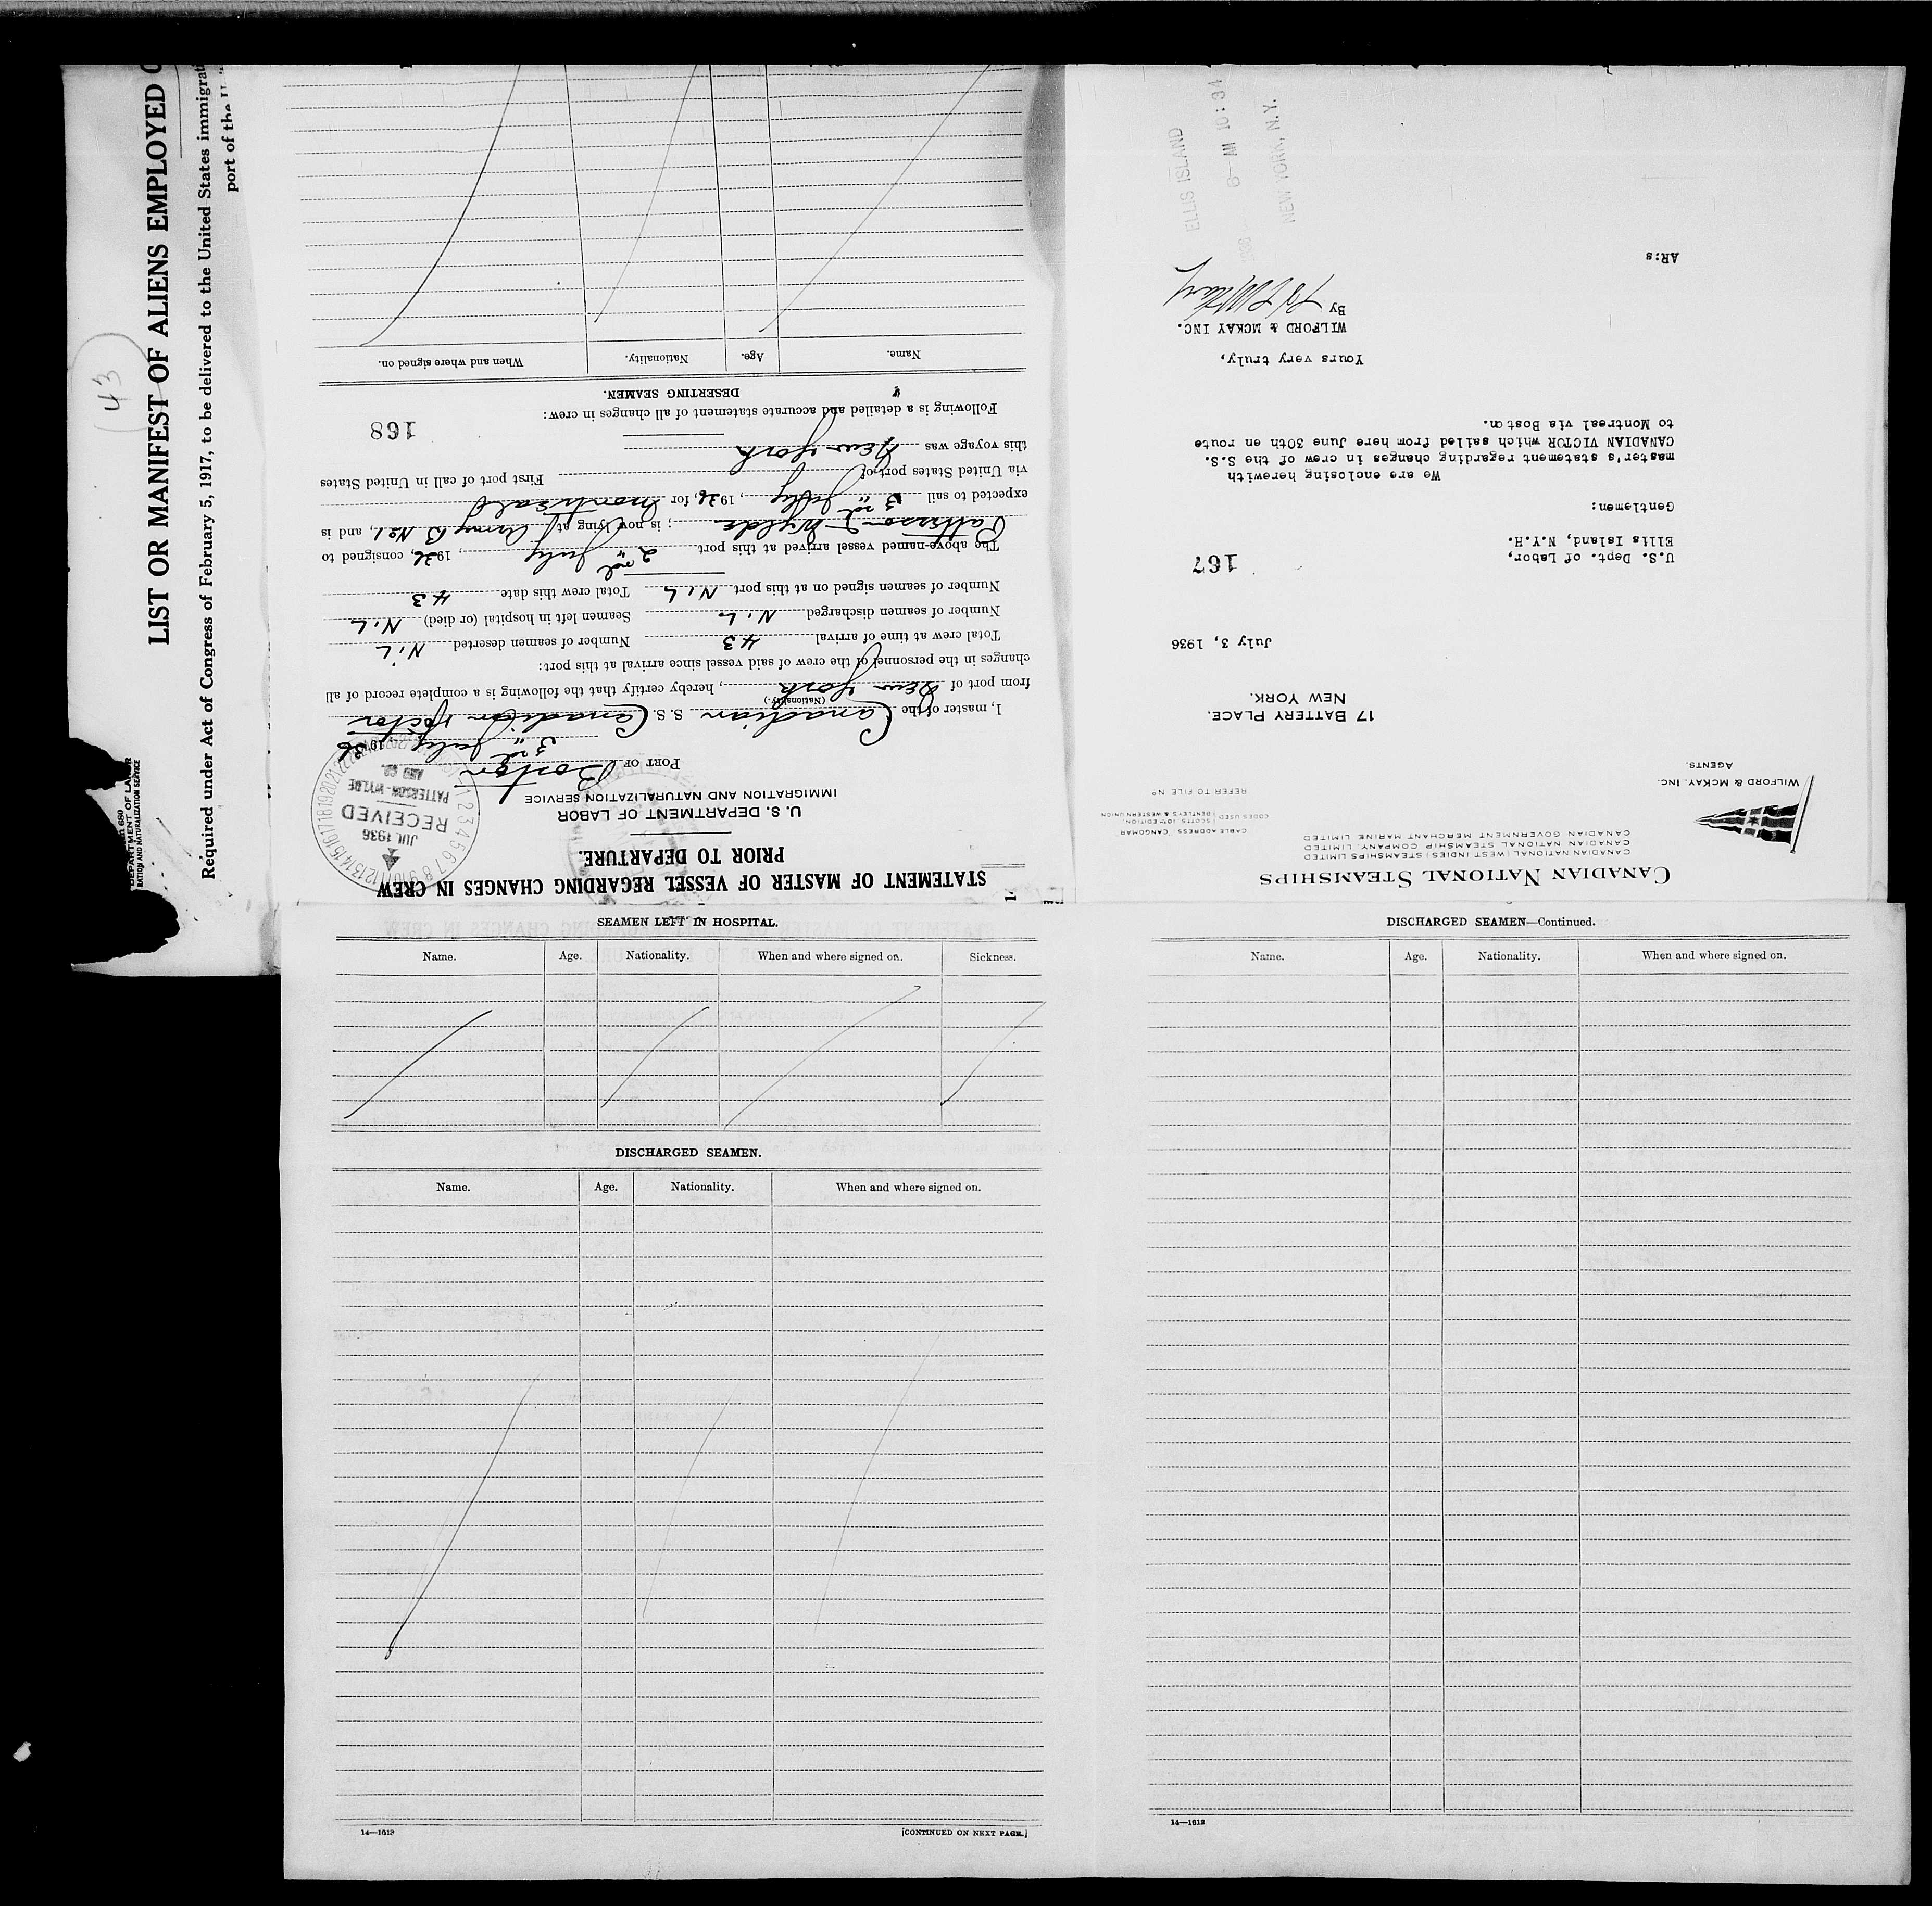 43
LIST OR MANIFEST OF ALIENS EMPLOYED
Required under Act of Congress of February 5, 1917, to be delivered to the United States immigrat
port of the
680
DEPARTMENT OF LABOR
RATION AND NATURALIZATION SERVICE
1
STATEMENT OF MASTER OF VESSEL REGARDING CHANGES IN CREW
PRIOR TO DEPARTURE.
U. S. DEPARTMENT OF LABOR
IMMIGRATION AND NATURALIZATION SERVICE
JUL 1936
RECEIVED
PATTERSON-WYLDE
AND CO.
PORT OF Boston
3rd July, 1936
I, master of the Canadian S. S. Canadian Victor
(Nationality.)
from port of New York, hereby certify that the following is a complete record of all
changes in the personnel of the crew of said vessel since arrival at this port:
Total crew at time of arrival 43 Number of seamen deserted NiL
Number of seamen discharged NiL Seamen left in hospital (or died) NiL
Number of seamen signed on at this port NiL Total crew this date 43
The above-named vessel arrived at this port 2nd July, 1936, consigned to
Patterson Wylde; is now lying at Army B No1, and is
expected to sail 3rd July, 1936, for Montreal
via United States port of First port of call in United States
this voyage was New York
Following is a detailed and accurate statement of all changes in crew:
168
DESERTING SEAMEN.
Name. Age. Nationality. When and where signed on.
CANADIAN NATIONAL STEAMSHIPS
CANADIAN NATIONAL (WEST INDIES) STEAMSHIPS LIMITED
CANADIAN NATIONAL STEAMSHIP COMPANY, LIMITED
CANADIAN GOVERNMENT MERCHANT MARINE LIMITED
CABLE ADDRESS "CANGOMAR"
CODES USED SCOTTS 10TH EDITION, BENTLEY'S & WESTERN UNION
REFER TO FILE Nº
WILFORD & MCKAY, INC.
AGENTS.
17 BATTERY PLACE,
NEW YORK.
July 3, 1936
167
U.S. Dept. of Labor,
Ellis Island, N.Y.H.
Gentlemen:
We are enclosing herewith
master's statement regarding changes in crew of the S.S.
CANADIAN VICTOR which sailed from here June 30th en route
to Montreal via Boston.
Yours very truly,
WILFORD & MCKAY INC.
By
AR:s
ELLIS ISLAND
6 — AM 10:34
NEW YORK, N.Y.
SEAMEN LEFT IN HOSPITAL.
Name. Age. Nationality. When and where signed on. Sickness.
DISCHARGED SEAMEN.
Name. Age. Nationality. When and where signed on.
14—1612
[CONTINUED ON NEXT PAGE.]
DISCHARGED SEAMEN—Continued.
Name. Age. Nationality. When and where signed on.
14—1612